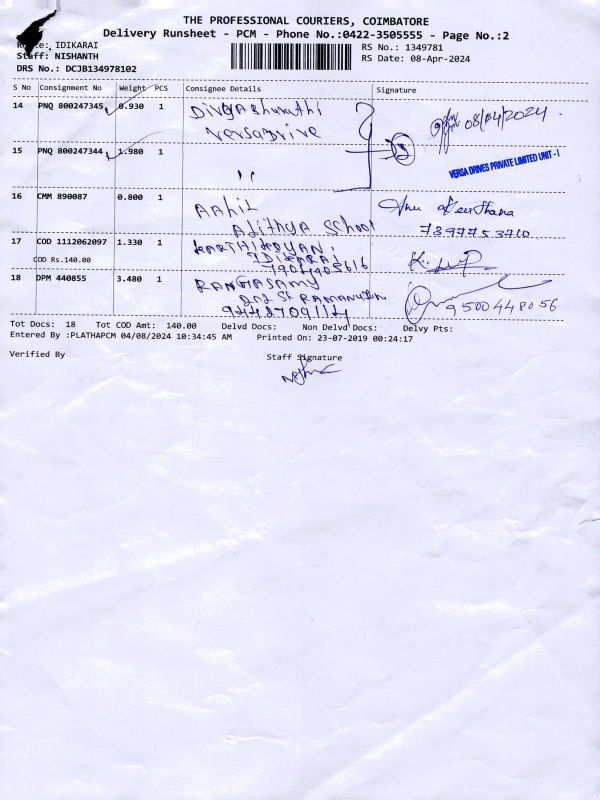 THE PROFESSIONAL COURIERS, COIMBATORE
Delivery Runsheet - PCM - Phone No.:0422-3505555 - Page No.:2
IDIKARAI
RS No.: 1349781
Staff: NISHANTH
RS Date: 08-Apr-2024
DRS No.: DCJB134978102
S No Consignment No Weight PCS Consignee Details Signature
14 PNQ 800247345 0.930 1 Divyabharathi
Versadrive
08/04/2024
15 PNQ 800247344 1.980 1 ,,
2
VERSA DRIVES PRIVATE LIMITED UNIT - I
16 CMM 890087 0.800 1 AAhil
Adithya School
7397753710
17 COD 1112062097 1.330 1 KARTHIKEYAN
IDIKARAI
COD Rs.140.00
18 DPM 440855 3.480 1 RANGASAMY
9500448056
Tot Docs: 18 Tot COD Amt: 140.00 Delvd Docs: Non Delvd Docs: Delvy Pts:
Entered By :PLATHAPCM 04/08/2024 10:34:45 AM Printed On: 23-07-2019 00:24:17
Verified By Staff Signature